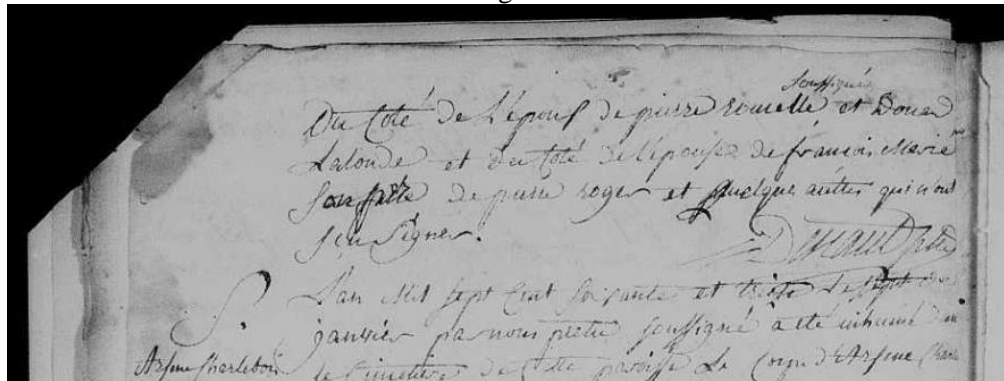 soussigné
Du Coté de L'epoux de pierre rouselle et Douar
Lalonde et du Coté de l'epouse de francois Marie
son frere de pierre roger et quelque autres qui n'ont
sçeu signer.
ptre
S. L'an Mil sept Cent soixante et treize le sept de
janvier par nous pretre soussigné a eté inhumé dans
Arsene Charlebois le Cimetiere de Cette paroisse Le Corps d'Arsene Charle